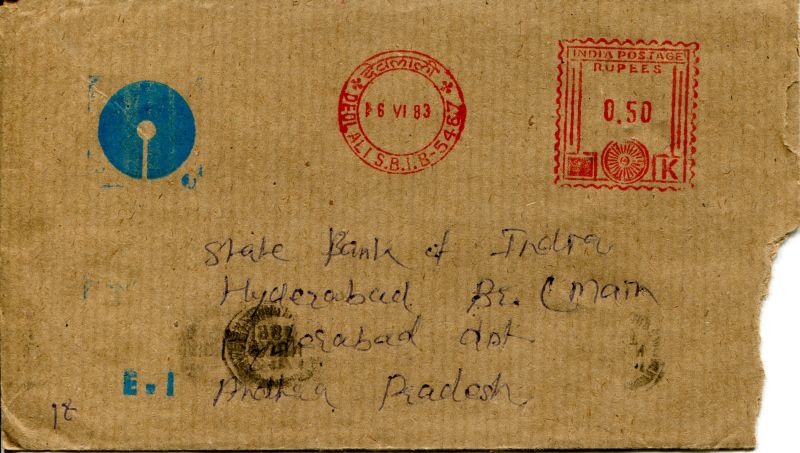 INDIA POSTAGE
RUPEES
0.50
K
देवलाली
16 VI 83
DEOLALI S.B.I.B-5467
State Bank of India
Hyderabad Br. (Main
Hyderabad dst
Andhra Pradesh
E.I
18